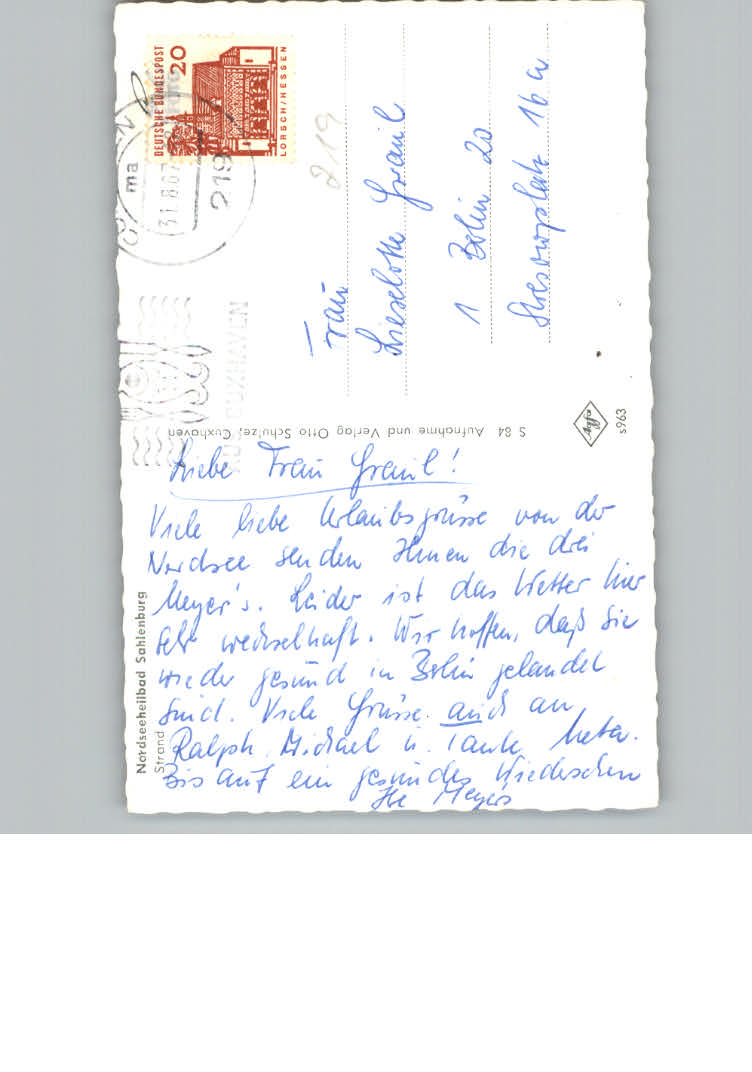 DEUTSCHE BUNDESPOST
20
LORSCH/HESSEN
219
31.8.67
219
CUXHAVEN
Frau
Lieselotte Graul
1 Berlin 20
Stresowplatz 16a
S 84 Aufnahme und Verlag Otto Schulze, Cuxhaven
Agfa
s963
Liebe Frau Graul!
Viele liebe Urlaubsgrüsse von der
Nordsee senden Ihnen die drei
Meyer's. Leider ist das Wetter hier
sehr wechselhaft. Wir hoffen, daß Sie
wieder gesund in Berlin gelandet
sind. Viele Grüsse auch an
Ralph, Michael u. Tante Meta.
Bis auf ein gesundes Wiedersehen
Ihre Meyers
Nordseeheilbad Sahlenburg
Strand